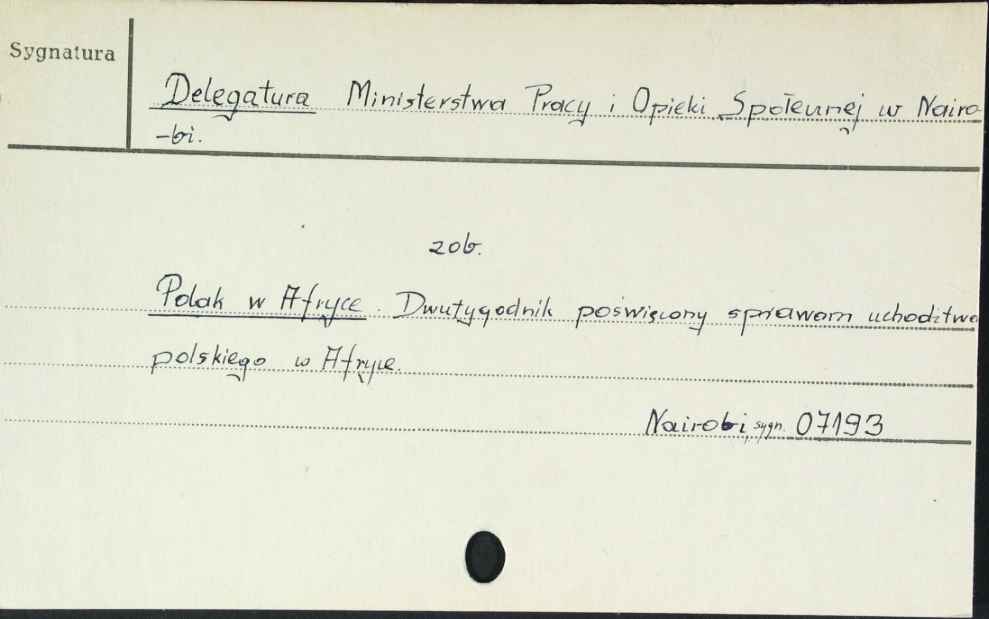 Sygnatura
Delegatura Ministerstwa Pracy i Opieki Społecznej w Nairo-
-bi.
zob.
Polak w Afryce. Dwutygodnik poświęcony sprawom uchodźtwa
polskiego w Afryce.
Nairobi, sygn. 07193